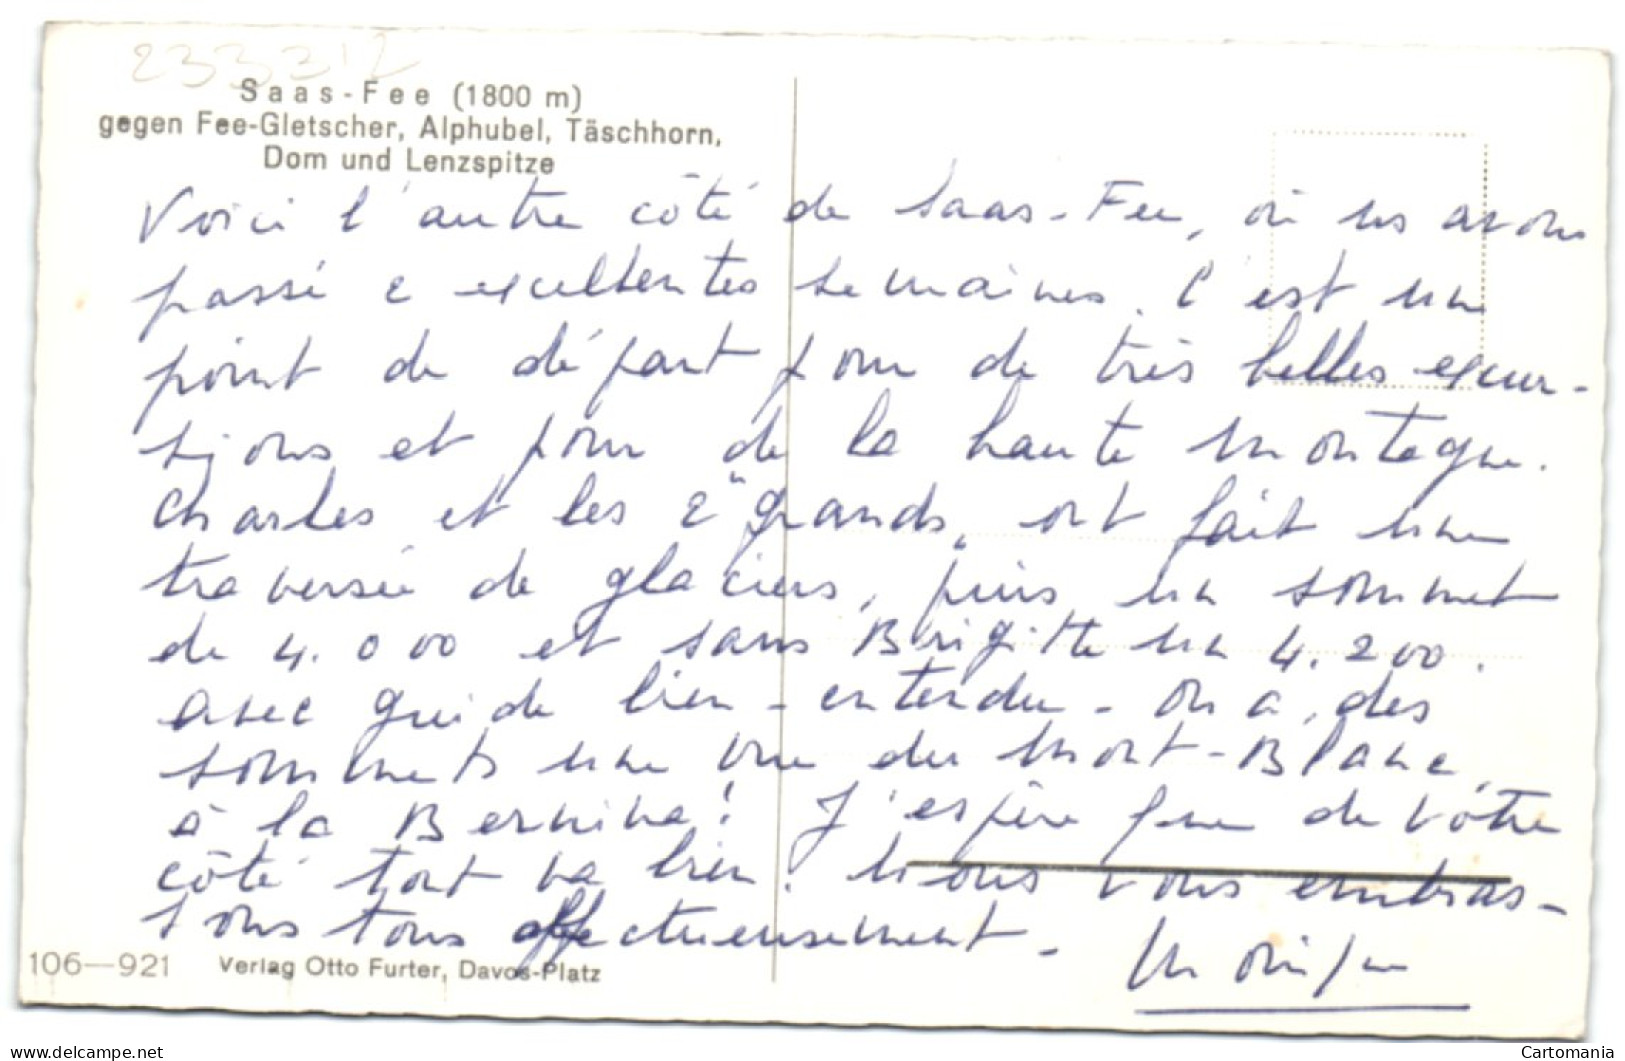 233312
Saas-Fee (1800 m)
gegen Fee-Gletscher, Alphubel, Täschhorn,
Dom und Lenzspitze
Voici l'autre côté de Saas-Fee, où ns avons
passé 2 excellentes semaines. C'est un
point de départ pour de très belles excur-
sions et pour de la haute montagne.
Charles et les 2 "grands" ont fait une
traversée de glaciers, puis un sommet
de 4.000 et sans Brigitte un 4.200.
avec guide bien-entendu - On a, des
sommets une vue du Mont-Blanc
à la Bernina! J'espère que de vôtre
côté tout va bien. Nous vous embras-
sons tous affectueusement -
Monique
106—921 Verlag Otto Furter, Davos-Platz
www.delcampe.net
Cartomania